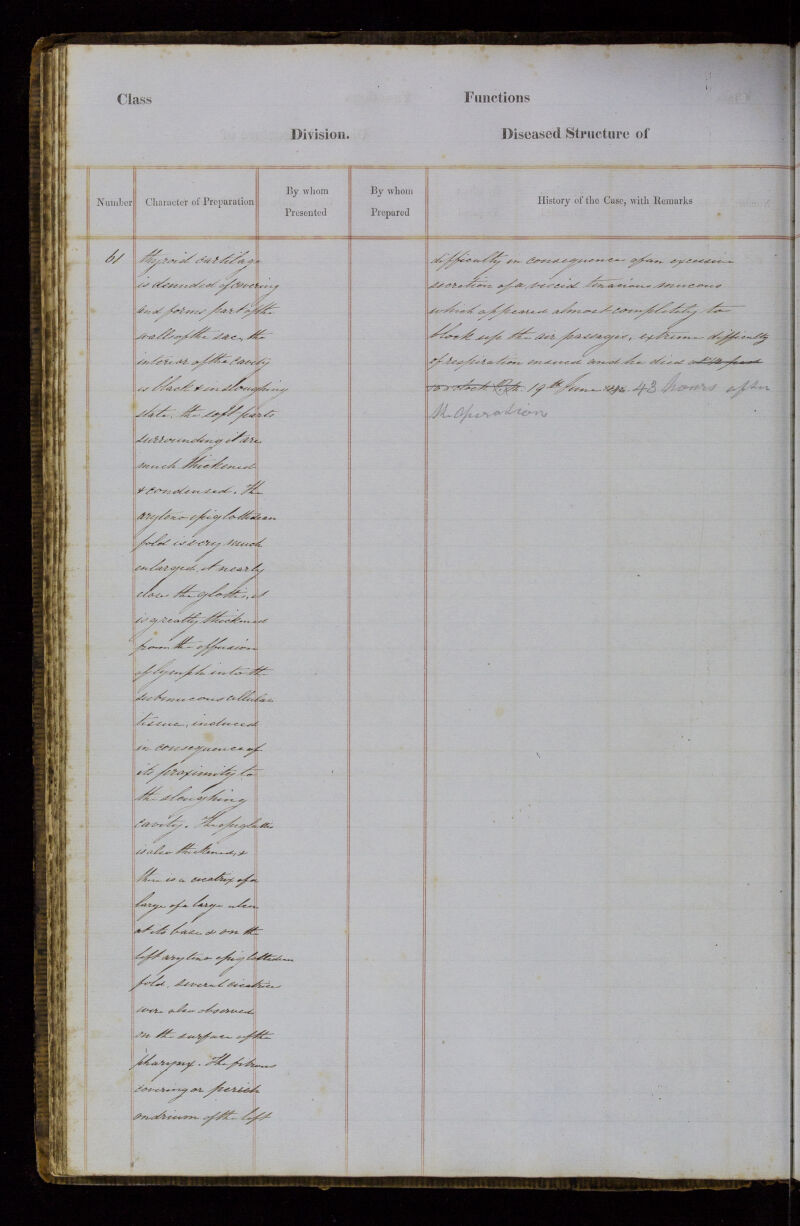 Class
Functions
Division.
Diseased Structure of
Number
Character of Preparation
By whom
Presented
By whom
Prepared
History of the Case, with Remarks
61
thyroid cartilage
is denuded of covering
and forms part of the
walls of the sac, the
interior of the cavity
is black & in sloughing
state. the soft parts
surrounding it are
much thickened
& condensed. The
aryteno epiglottidean
fold is very much
enlarged, it nearly
closes the glottis, &
is greatly thickened
from the effusion
of lymph into the
submucous cellular
tissue, induced
in consequence of
its proximity to
the sloughing
cavity. The epiglottis
is also thickened, &
there is a cicatrix of a
large of a large ulcer
at its base & on the
left aryteno epiglottidean
fold. several cicatrices
were also observed
on the surface of the
pharynx. The fibrous
covering or perich
ondrium of the left
difficulty in consequence of an excessive
secretion of a viscid tenacious mucous
which appeared almost completely to
block up the air passages, extreme difficulty
of respiration ensued and he died
19th June 43 hours after
the operation